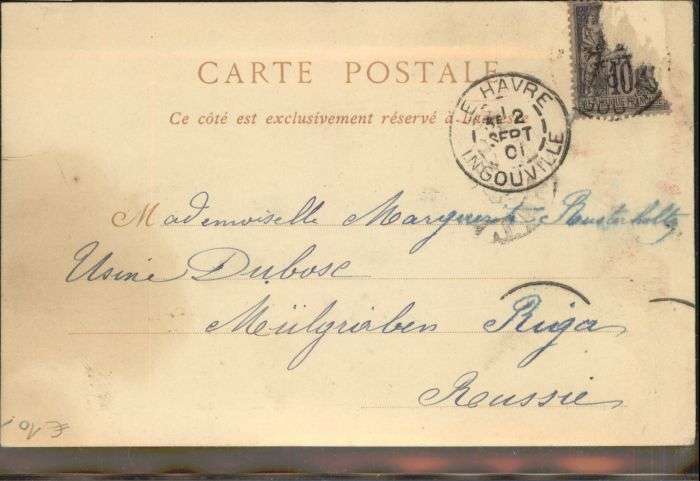 CARTE POSTALE
Ce côté est exclusivement réservé à
LE HAVRE
12
SEPT
01
INGOUVILLE
10
Mademoiselle Marguerite Rusterholtz
Usine Dubosc
Mülgraben Riga
Russie